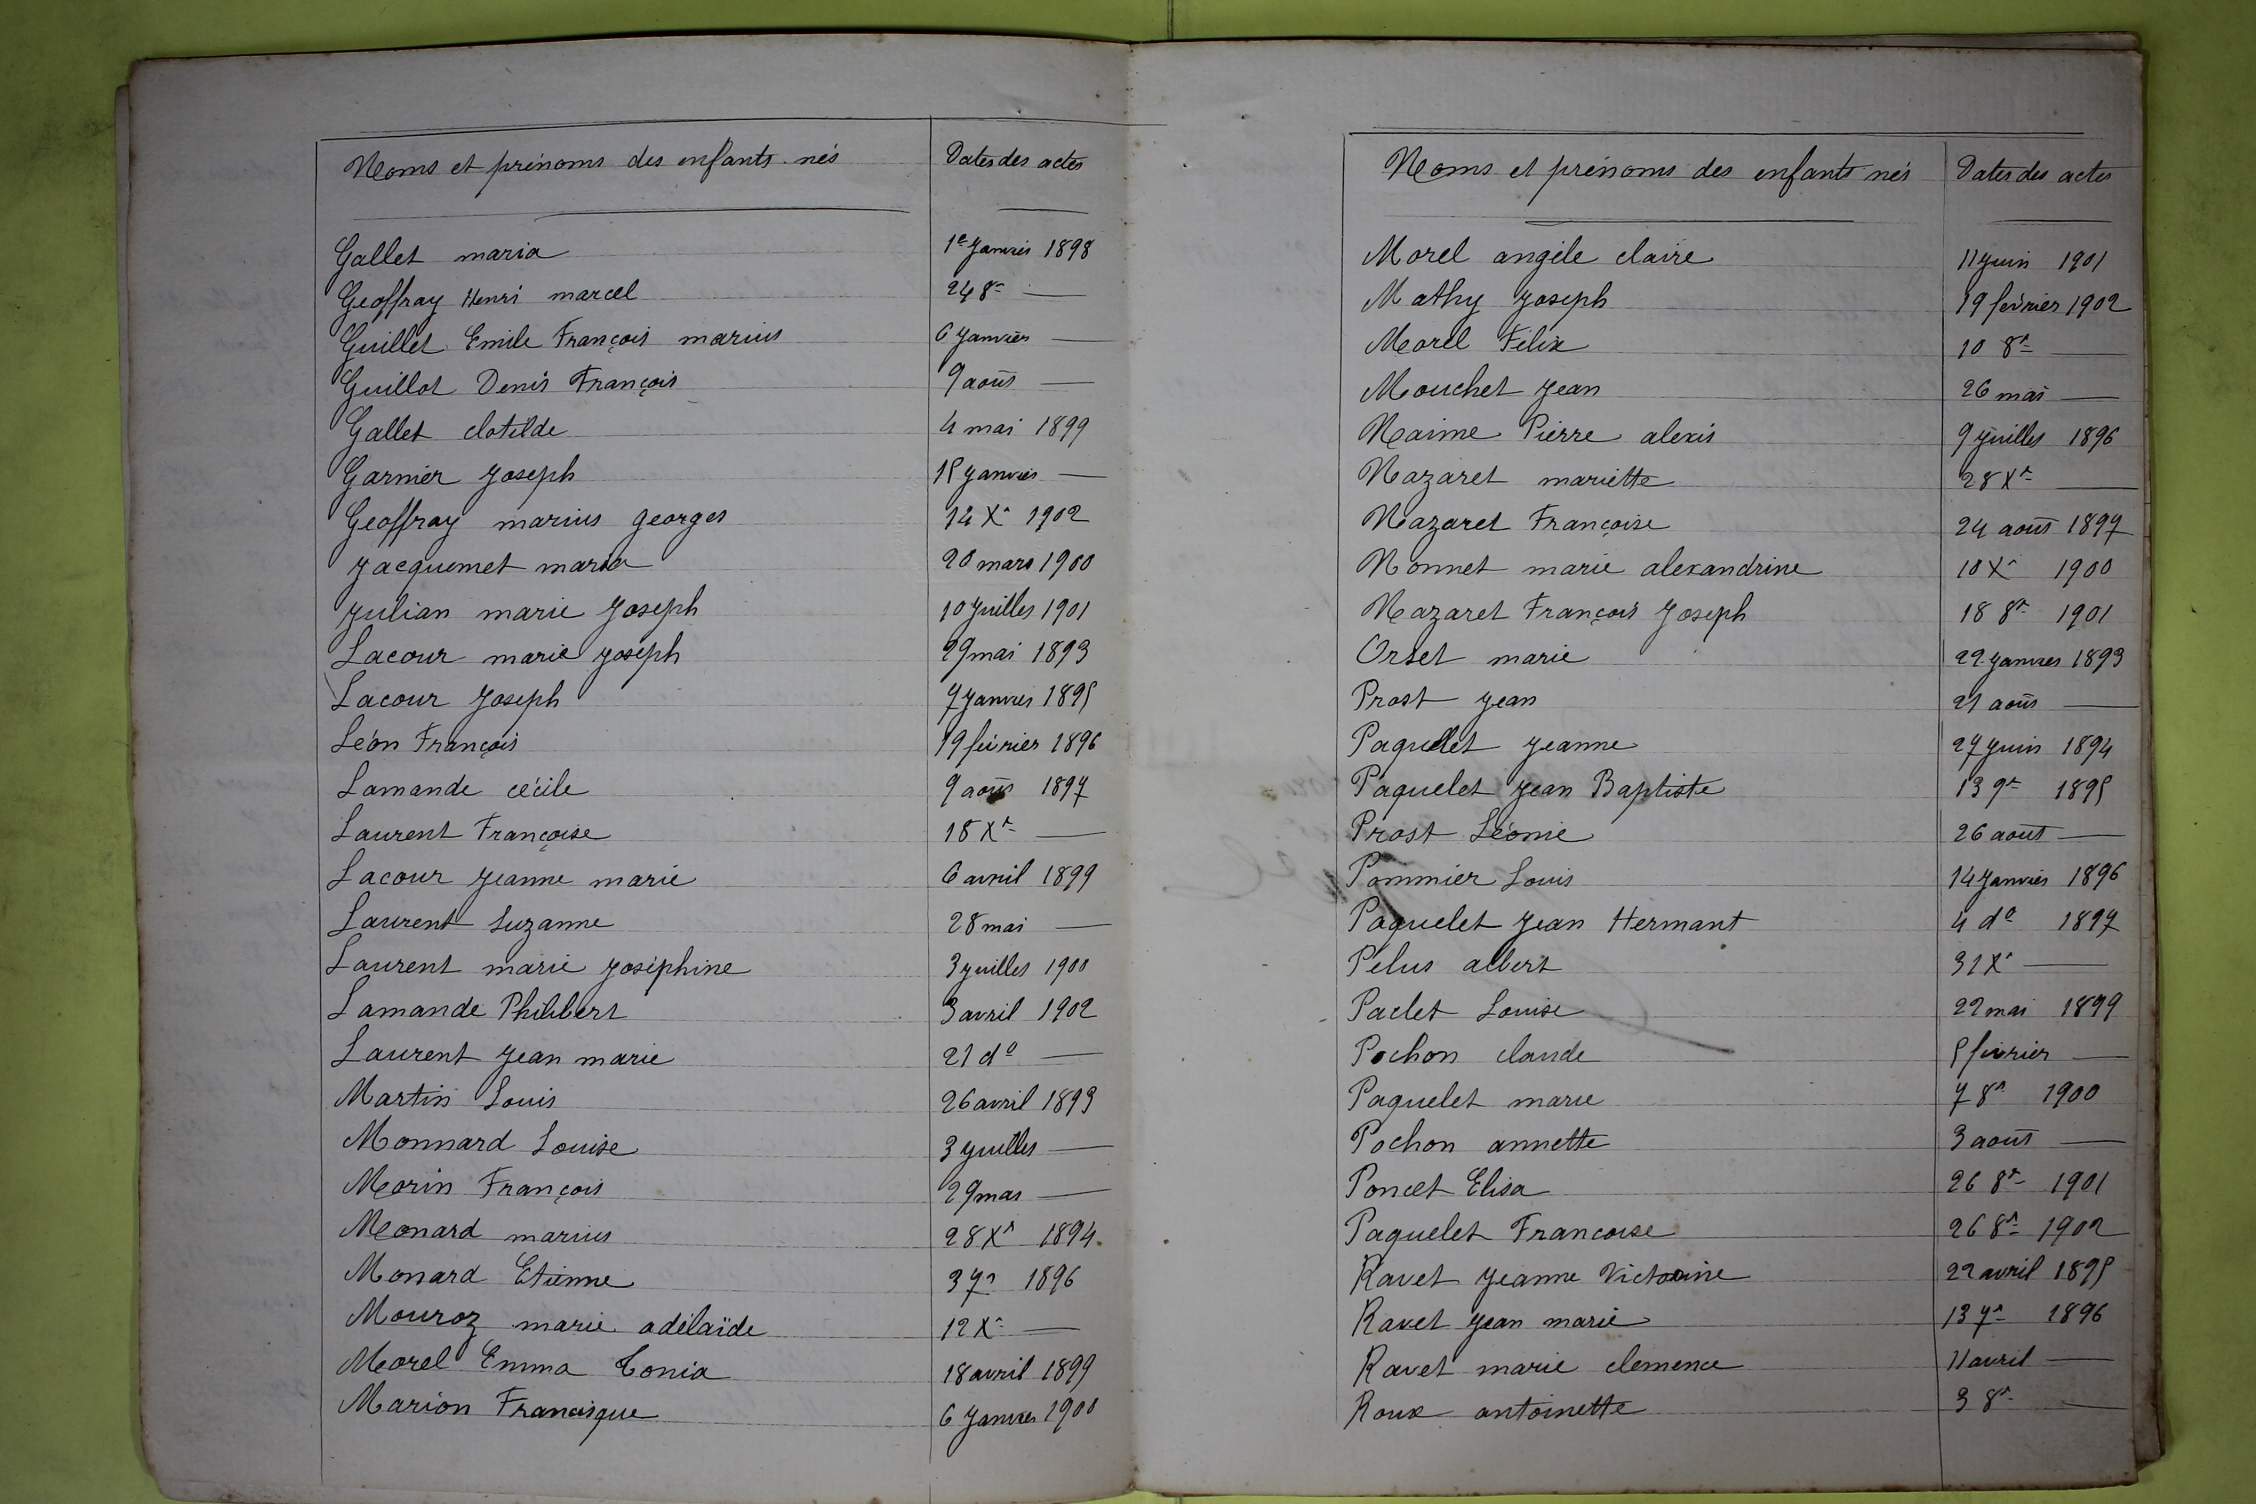 Noms et prénoms des enfants nés Dates des actes
Gallet maria 1e Janvier 1898
Geoffray Henri marcel 24 8re —
Guillet Emile François marius 6 Janvier —
Guillot Denis François 9 août —
Gallet clotilde 4 mai 1899
Garnier Joseph 15 Janvier —
Geoffray marius georges 14 Xre 1902
Jacquemet maria 20 mars 1900
Julian marie Joseph 10 Juillet 1901
Lacour marie Joseph 29 mai 1893
Lacour Joseph 7 Janvier 1895
Léon François 19 février 1896
Lamande cécile 9 août 1897
Laurent Françoise 18 Xre —
Lacour Jeanne marie 6 avril 1899
Laurent Suzanne 28 mai —
Laurent marie Joséphine 3 Juillet 1900
Lamande Philibert 3 avril 1902
Laurent Jean marie 21 do —
Martin Louis 26 avril 1893
Monnard Louise 3 Juillet —
Morin François 29 mas —
Monard marius 28 Xre 1894.
Monard Etienne 3 7re 1896
Mouroz marie adélaïde 12 Xre —
Morel Emma Tonia 18 avril 1899
Marion Francisque 6 Janvier 1900
Noms et prénoms des enfants nés Dates des actes
Morel angèle claire 11 Juin 1901
Mathy Joseph 19 février 1902
Morel Félix 10 8re —
Mouchet Jean 26 mai —
Naime Pierre alexis 9 Juillet 1896
Nazaret mariette 28 Xre —
Nazaret Françoise 24 août 1897
Nonnet marie alexandrine 10 Xre 1900
Nazaret François Joseph 18 8re 1901
Orset marie 22 Janvier 1893
Prost Jean 21 août —
Paquelet Jeanne 27 Juin 1894
Paquelet Jean Baptiste 13 9re 1895
Prost Léonie 26 août —
Pommier Louis 14 Janvier 1896
Paquelet Jean Hermant 4 do 1897
Pelus albert 31 Xre —
Paclet Louise 22 mai 1899
Pochon claude 5 février —
Paquelet marie 7 8re 1900
Pochon annette 3 août —
Poncet Elisa 26 8re 1901
Paquelet Francoise 26 8re 1902
Ravet Jeanne Victorine 22 avril 1895
Ravet Jean marie 13 7re 1896
Ravet marie clemence 11 avril —
Roux antoinette 3 8re —